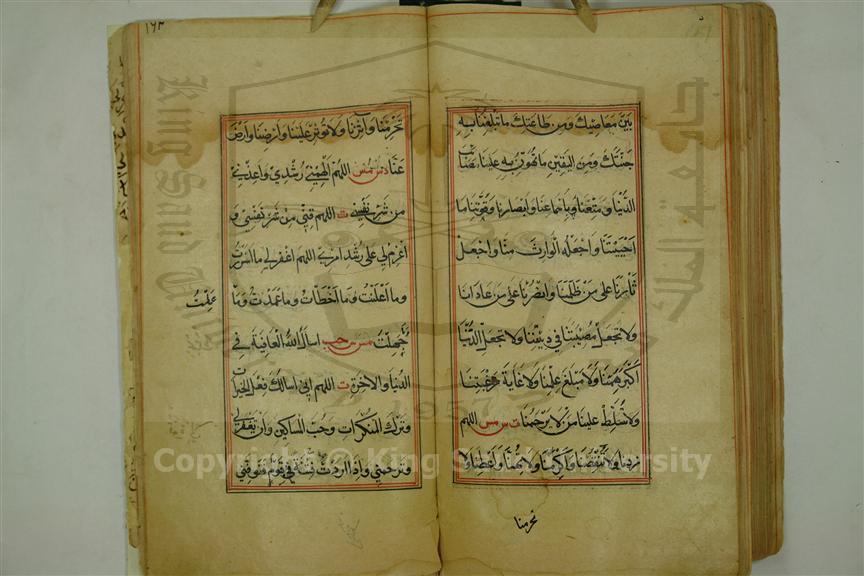 بين معاصيك ومن طاعتك ما تبلغنا به
جنتك ومن اليقين ما تهون به علينا مصائب
الدنيا ومتعنا باسماعنا وابصارنا وقوتنا ما
احييتنا واجعله الوارث منا واجعل
ثارنا على من ظلمنا وانصرنا على من عادانا
ولا تجعل مصيبتنا في ديننا ولا تجعل الدنيا
اكبر همنا ولا مبلغ علمنا ولا غاية رغبتنا
ولا تسلط علينا من لا يرحمنا ت س مس اللهم
زدنا ولا تنقصنا واكرمنا ولا تهنا واعطنا ولا
تحرمنا
١٦٣
تحرمنا واثرنا ولا توثر علينا وارضنا وارض
عنا ت س مس اللهم الهمني رشدي واعذني
من شر نفسي ت اللهم قني من شر نفسي و
اعزم لي على رشد امري اللهم اغفر لي ما اسررت
وما اعلنت وما اخطات وما عمدت وما
علمت
جهلت مس س حب اسال الله العافية في
الدنيا والاخرة ت اللهم اني اسالك فعل الخيرات
وترك المنكرات وحب المساكين وان تغفر لي
وترحمني واذا اردت فتنة في قوم فتوفني
جامعة الملك
King Saud
1957
Copyright © King Saud University